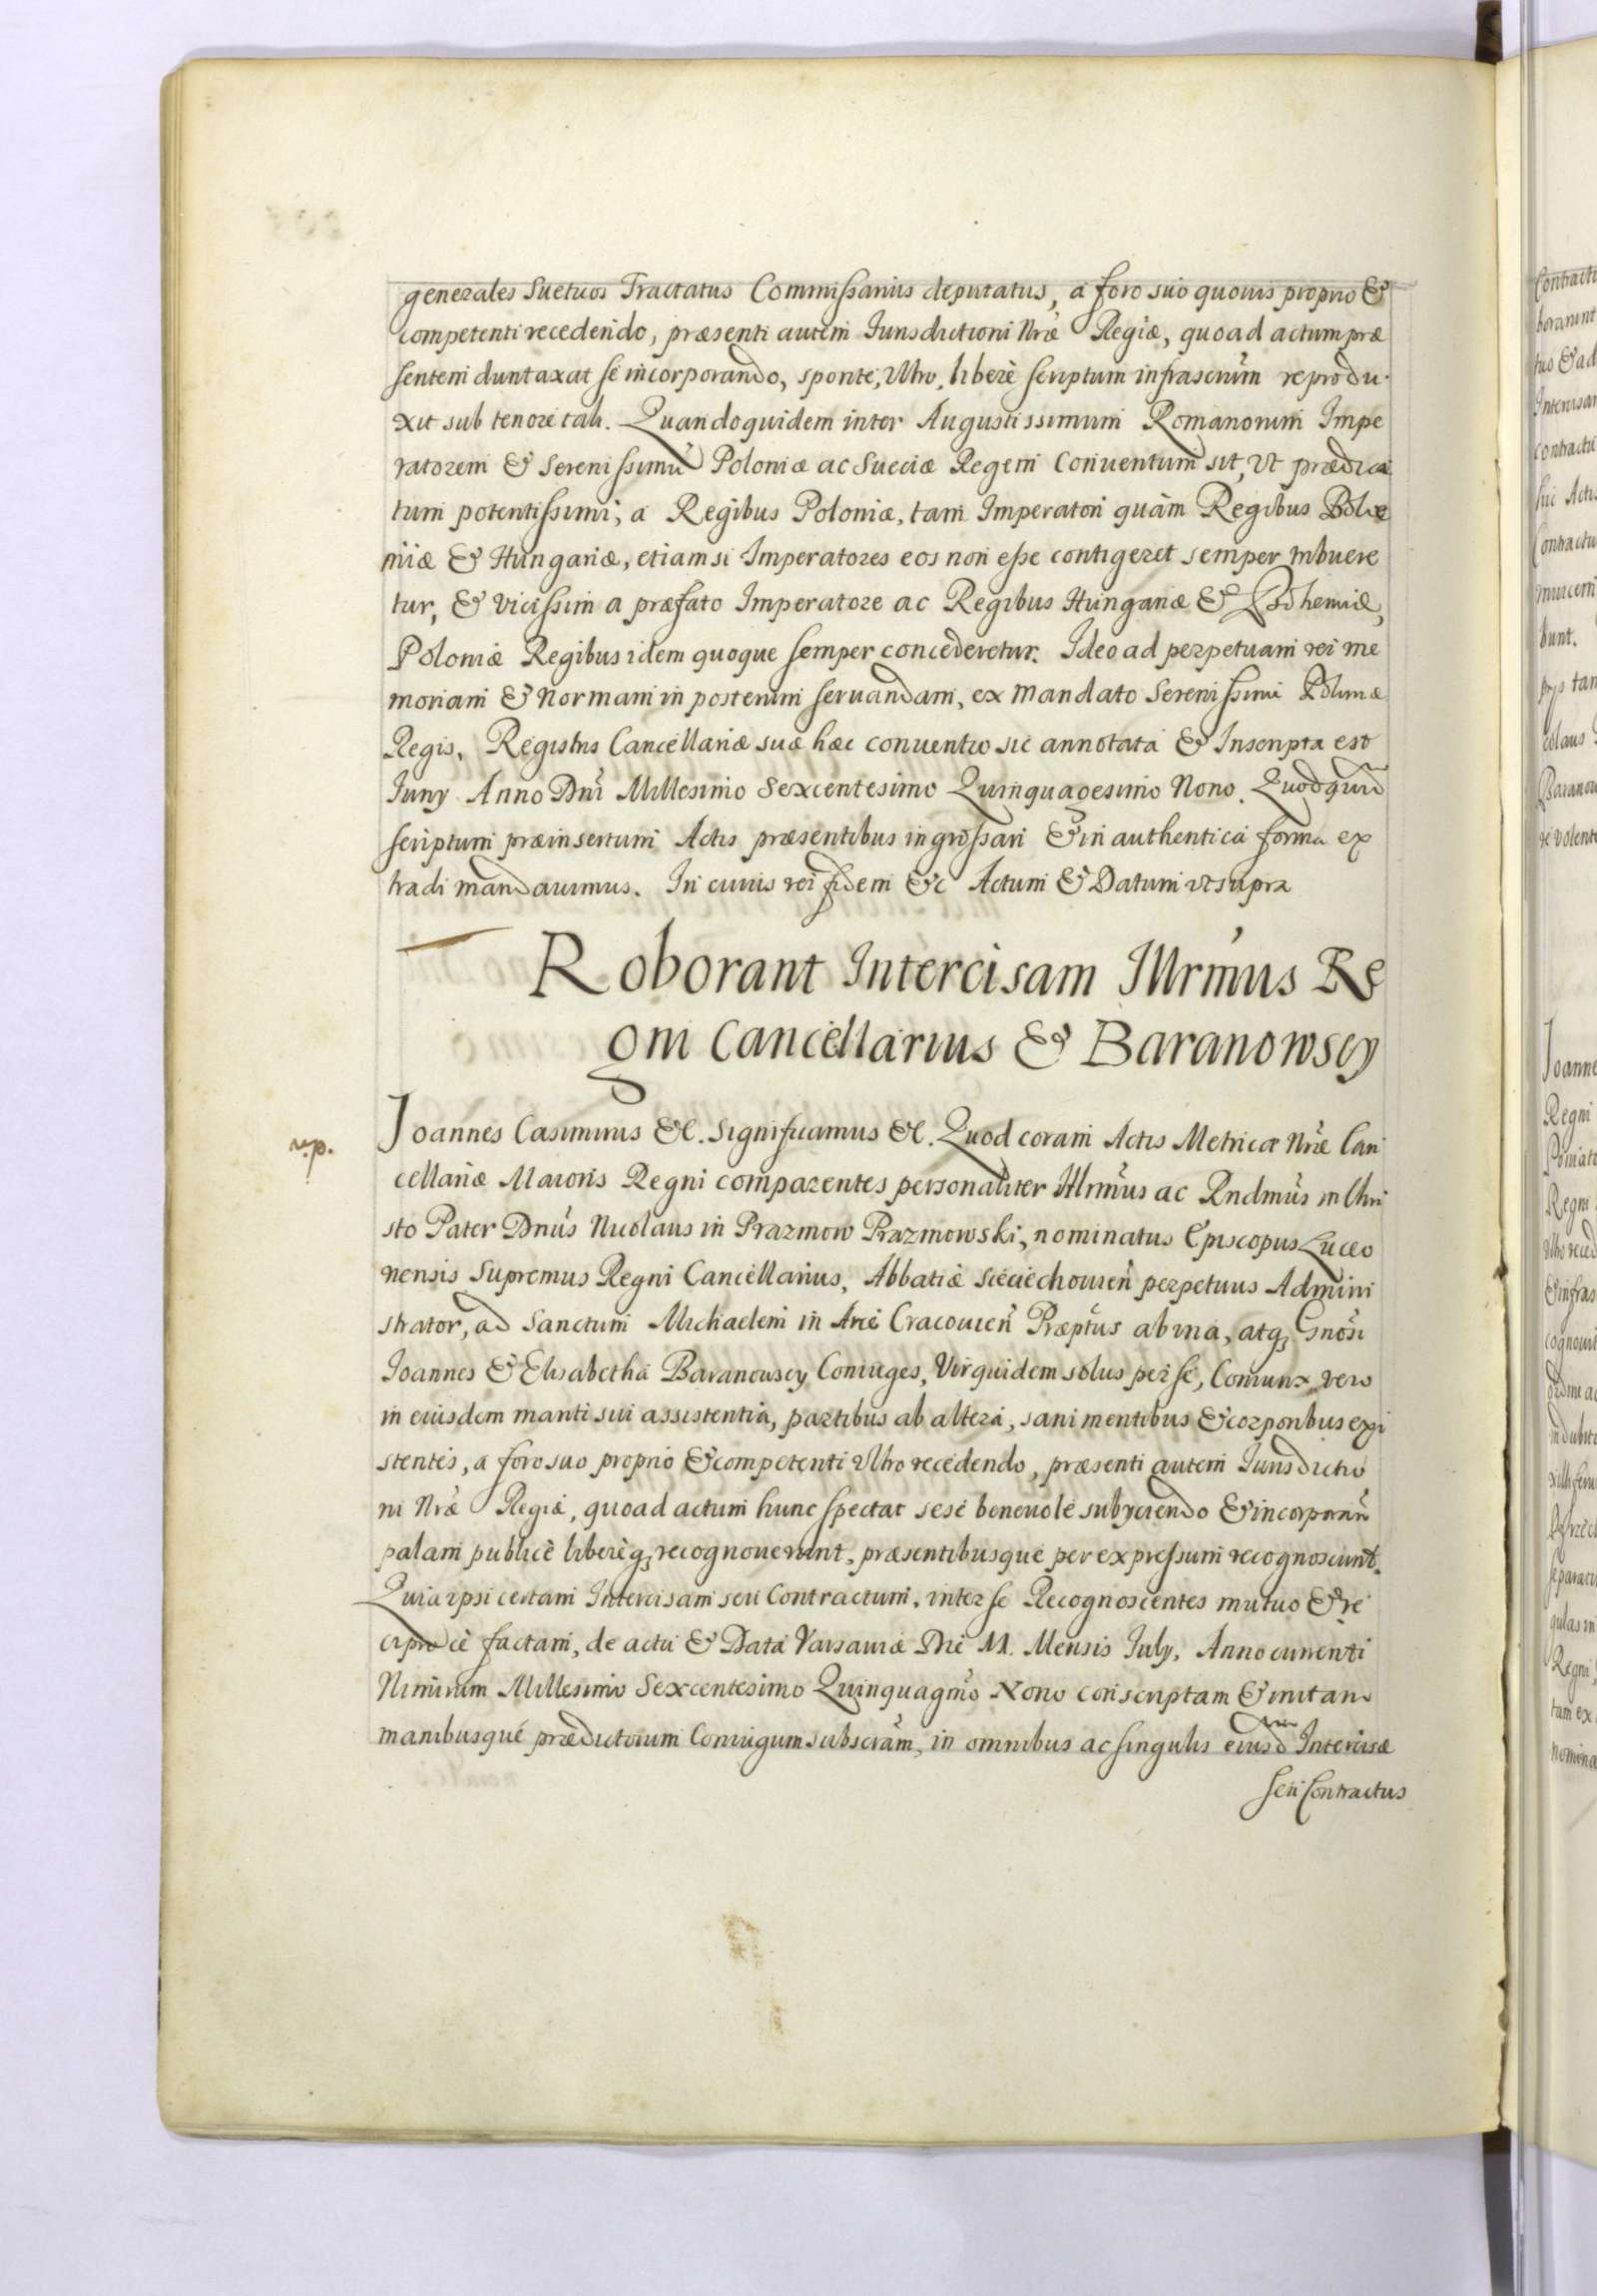 generales Suetıcos Tractatus Commissarius deputatus, a foro suo quouis proprio &
competenti recedendo, præsenti autem Iurisdictioni Nræ Regiæ, quoad actum præ
sentem duntaxat se incorporando, sponte, Vltro, liberè scriptum infrascrûm reprodu
xit sub tenore tali. Quandoquidem inter Augustissimum Romanorum Impe
ratorem & Serenissimû Poloniæ ac Sueciæ Regem Conuentum sit, Vt prædica
tum potentissimi, a Regibus Poloniæ, tam Imperatori quàm Regibus Bohe
miæ & Hungariæ, etiamsi Imperatores eos non esse contigeret semper tribuere
tur, & vicissim a præfato Imperatore ac Regibus Hungariæ & Bohemiæ,
Poloniæ Regibus idem quoque semper concederetur. Ideo ad perpetuam rei me
moriam & normam in posterum seruandam, ex Mandato Serenissimi Poloniæ
Regis, Registris Cancellariæ suæ hæc conuentio sic annotata & Inscripta est
Iuny Anno Dnî Millesimo Sexcentesimo Quinquagesimo Nono. Quodquid
scriptum præinsertum Actis præsentibus ingrossari & in authentica forma ex
tradi mandauimus. In cuius rei fidem &c Actum & Datum vt supra
Roborant Intercisam Illrmus Re
gni Cancellarius & Baranowscy
r.p.
Joannes Casimirus &c. Significamus &c. Quod coram Actis Metricæ Nræ Can
cellariæ Maioris Regni comparentes personaliter Illrmûs ac Rndmûs in Chri
sto Pater Dnûs Nicolaus in Prazmow Prazmowski, nominatus Episcopus Luceo
nensis Supremus Regni Cancellarius, Abbatiæ Sieciechouien̂ perpetuus Admini
strator, ad Sanctum Michaelem in Arce Cracouien̂ Præptûs ab vna, atq, Gnôsi
Joannes & Elisabetha Baranowscy Coniuges, Vir quidem solus per se, Coniunx vero
in eiusdem mariti sui assistentia, partibus ab altera, sani mentibus & corporibus exi
stentes, a foro suo proprio & competenti Vltro recedendo, præsenti autem Iurisdictio
ni Nræ Regiæ, quoad actum hunc spectat sese beneuole subyciendo & incorporan̂
palam publicè liberèq, recognouerunt, præsentibusque per expressum recognoscunt.
Quia ipsi certam Intercisam seu Contractum, inter se Recognoscentes mutuo & re
ciproce factam, de actu & Data Varsauiæ Die XI. Mensis July, Anno currenti
Nimirum Millesimo Sexcentesimo Quinquagmô Nono conscriptam & initam
manibusque prædictorum Coniugum subscrâm, in omnibus ac singulis eiusd Intercisæ
seu Contractus